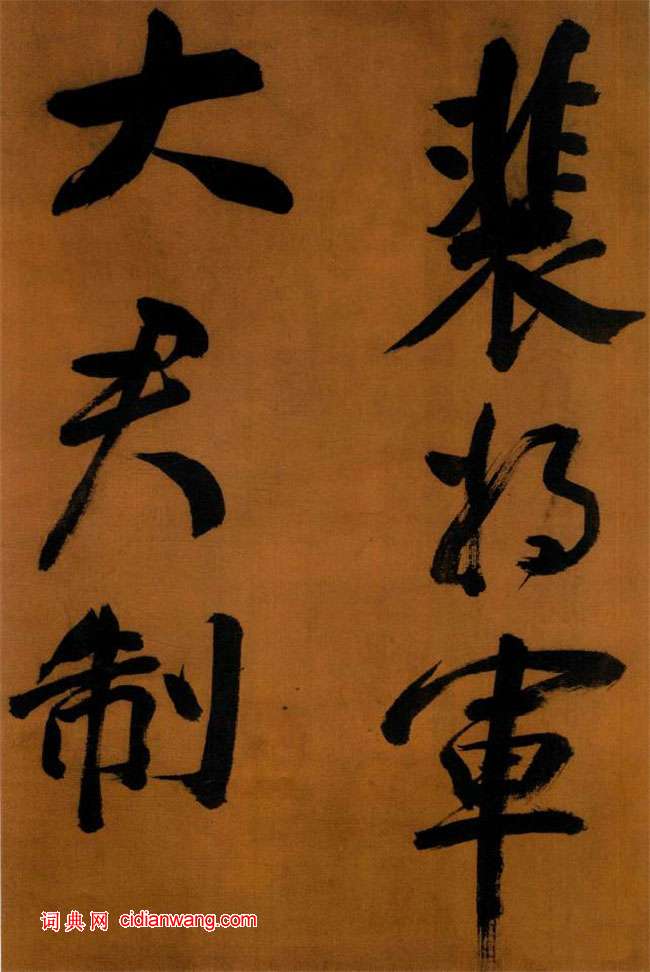 裴将軍
大君制
词典网 cidianwang.com